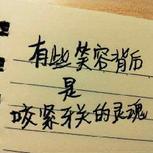 有些笑容背后
是
咬紧牙关的灵魂